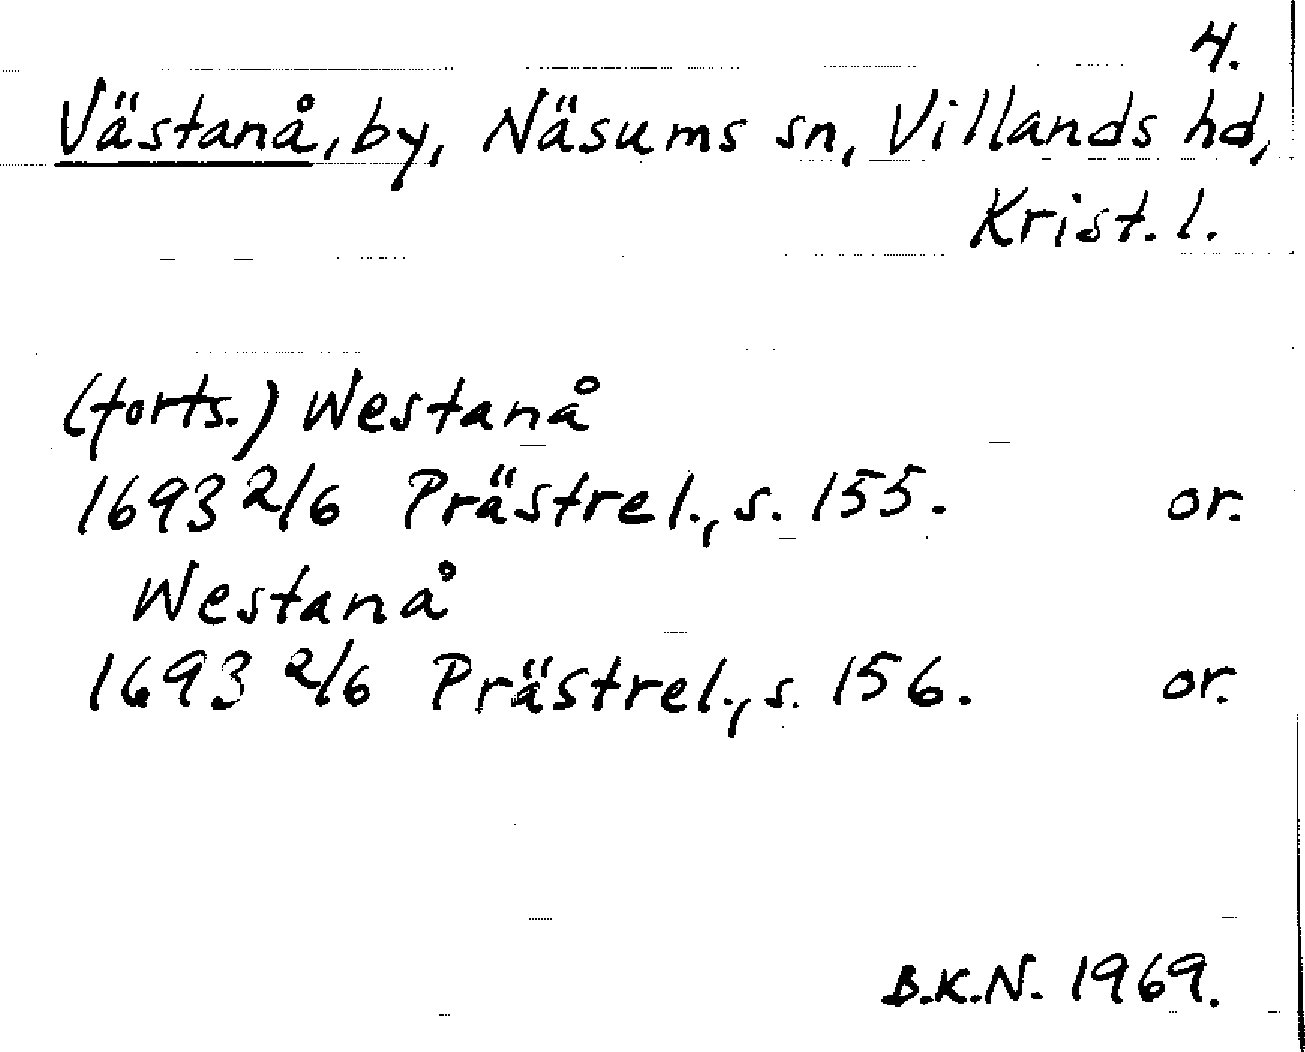 4.
Västanå, by, Näsums sn, Villands hd,
Krist. l.
(forts.) Westanå
1693 2/6 Prästrel., s. 155. or.
Westanå
1693 2/6 Prästrel., s. 156. or.
B.K.N. 1969.